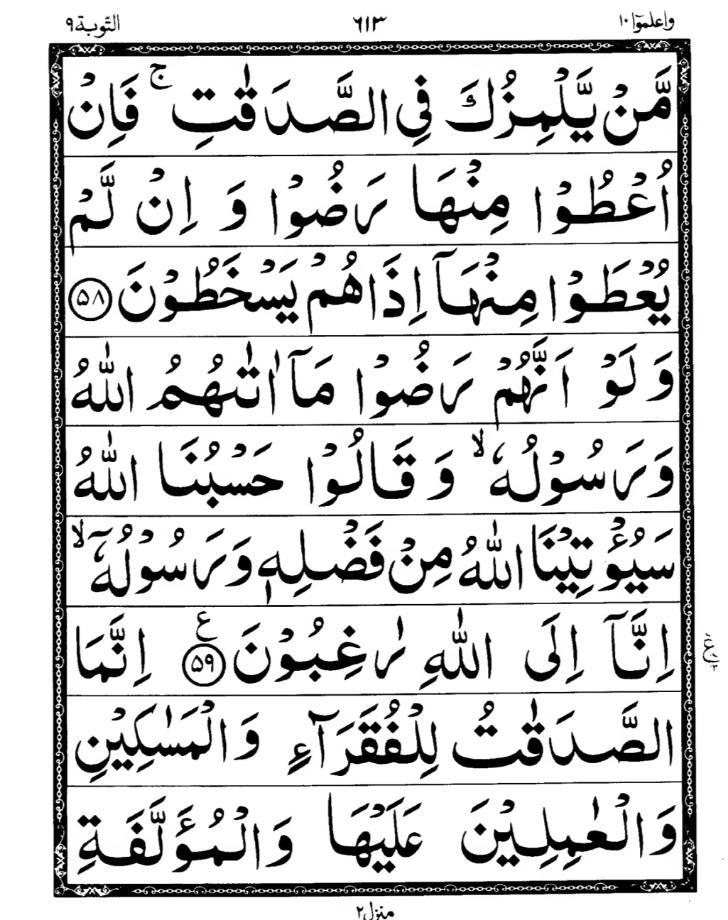 واعلموا ١٠ ٦١٣ التوبة ٩
مَّنْ يَّلْمِزُكَ فِى الصَّدَقٰتِ ۚ فَاِنْ
اُعْطُوْا مِنْهَا رَضُوْا وَ اِنْ لَّمْ
يُعْطَوْا مِنْهَآ اِذَا هُمْ يَسْخَطُوْنَ ﴿۵۸﴾
وَ لَوْ اَنَّهُمْ رَضُوْا مَآ اٰتٰىهُمُ اللّٰهُ
وَ رَسُوْلُهٗ ۙ وَ قَالُوْا حَسْبُنَا اللّٰهُ
سَيُؤْتِيْنَا اللّٰهُ مِنْ فَضْلِهٖ وَ رَسُوْلُهٗٓ ۙ
اِنَّآ اِلَى اللّٰهِ رٰغِبُوْنَ ﴿۵۹﴾ ع اِنَّمَا
الصَّدَقٰتُ لِلْفُقَرَآءِ وَ الْمَسٰكِيْنِ
وَ الْعٰمِلِيْنَ عَلَيْهَا وَ الْمُؤَلَّفَةِ
منزل ٢